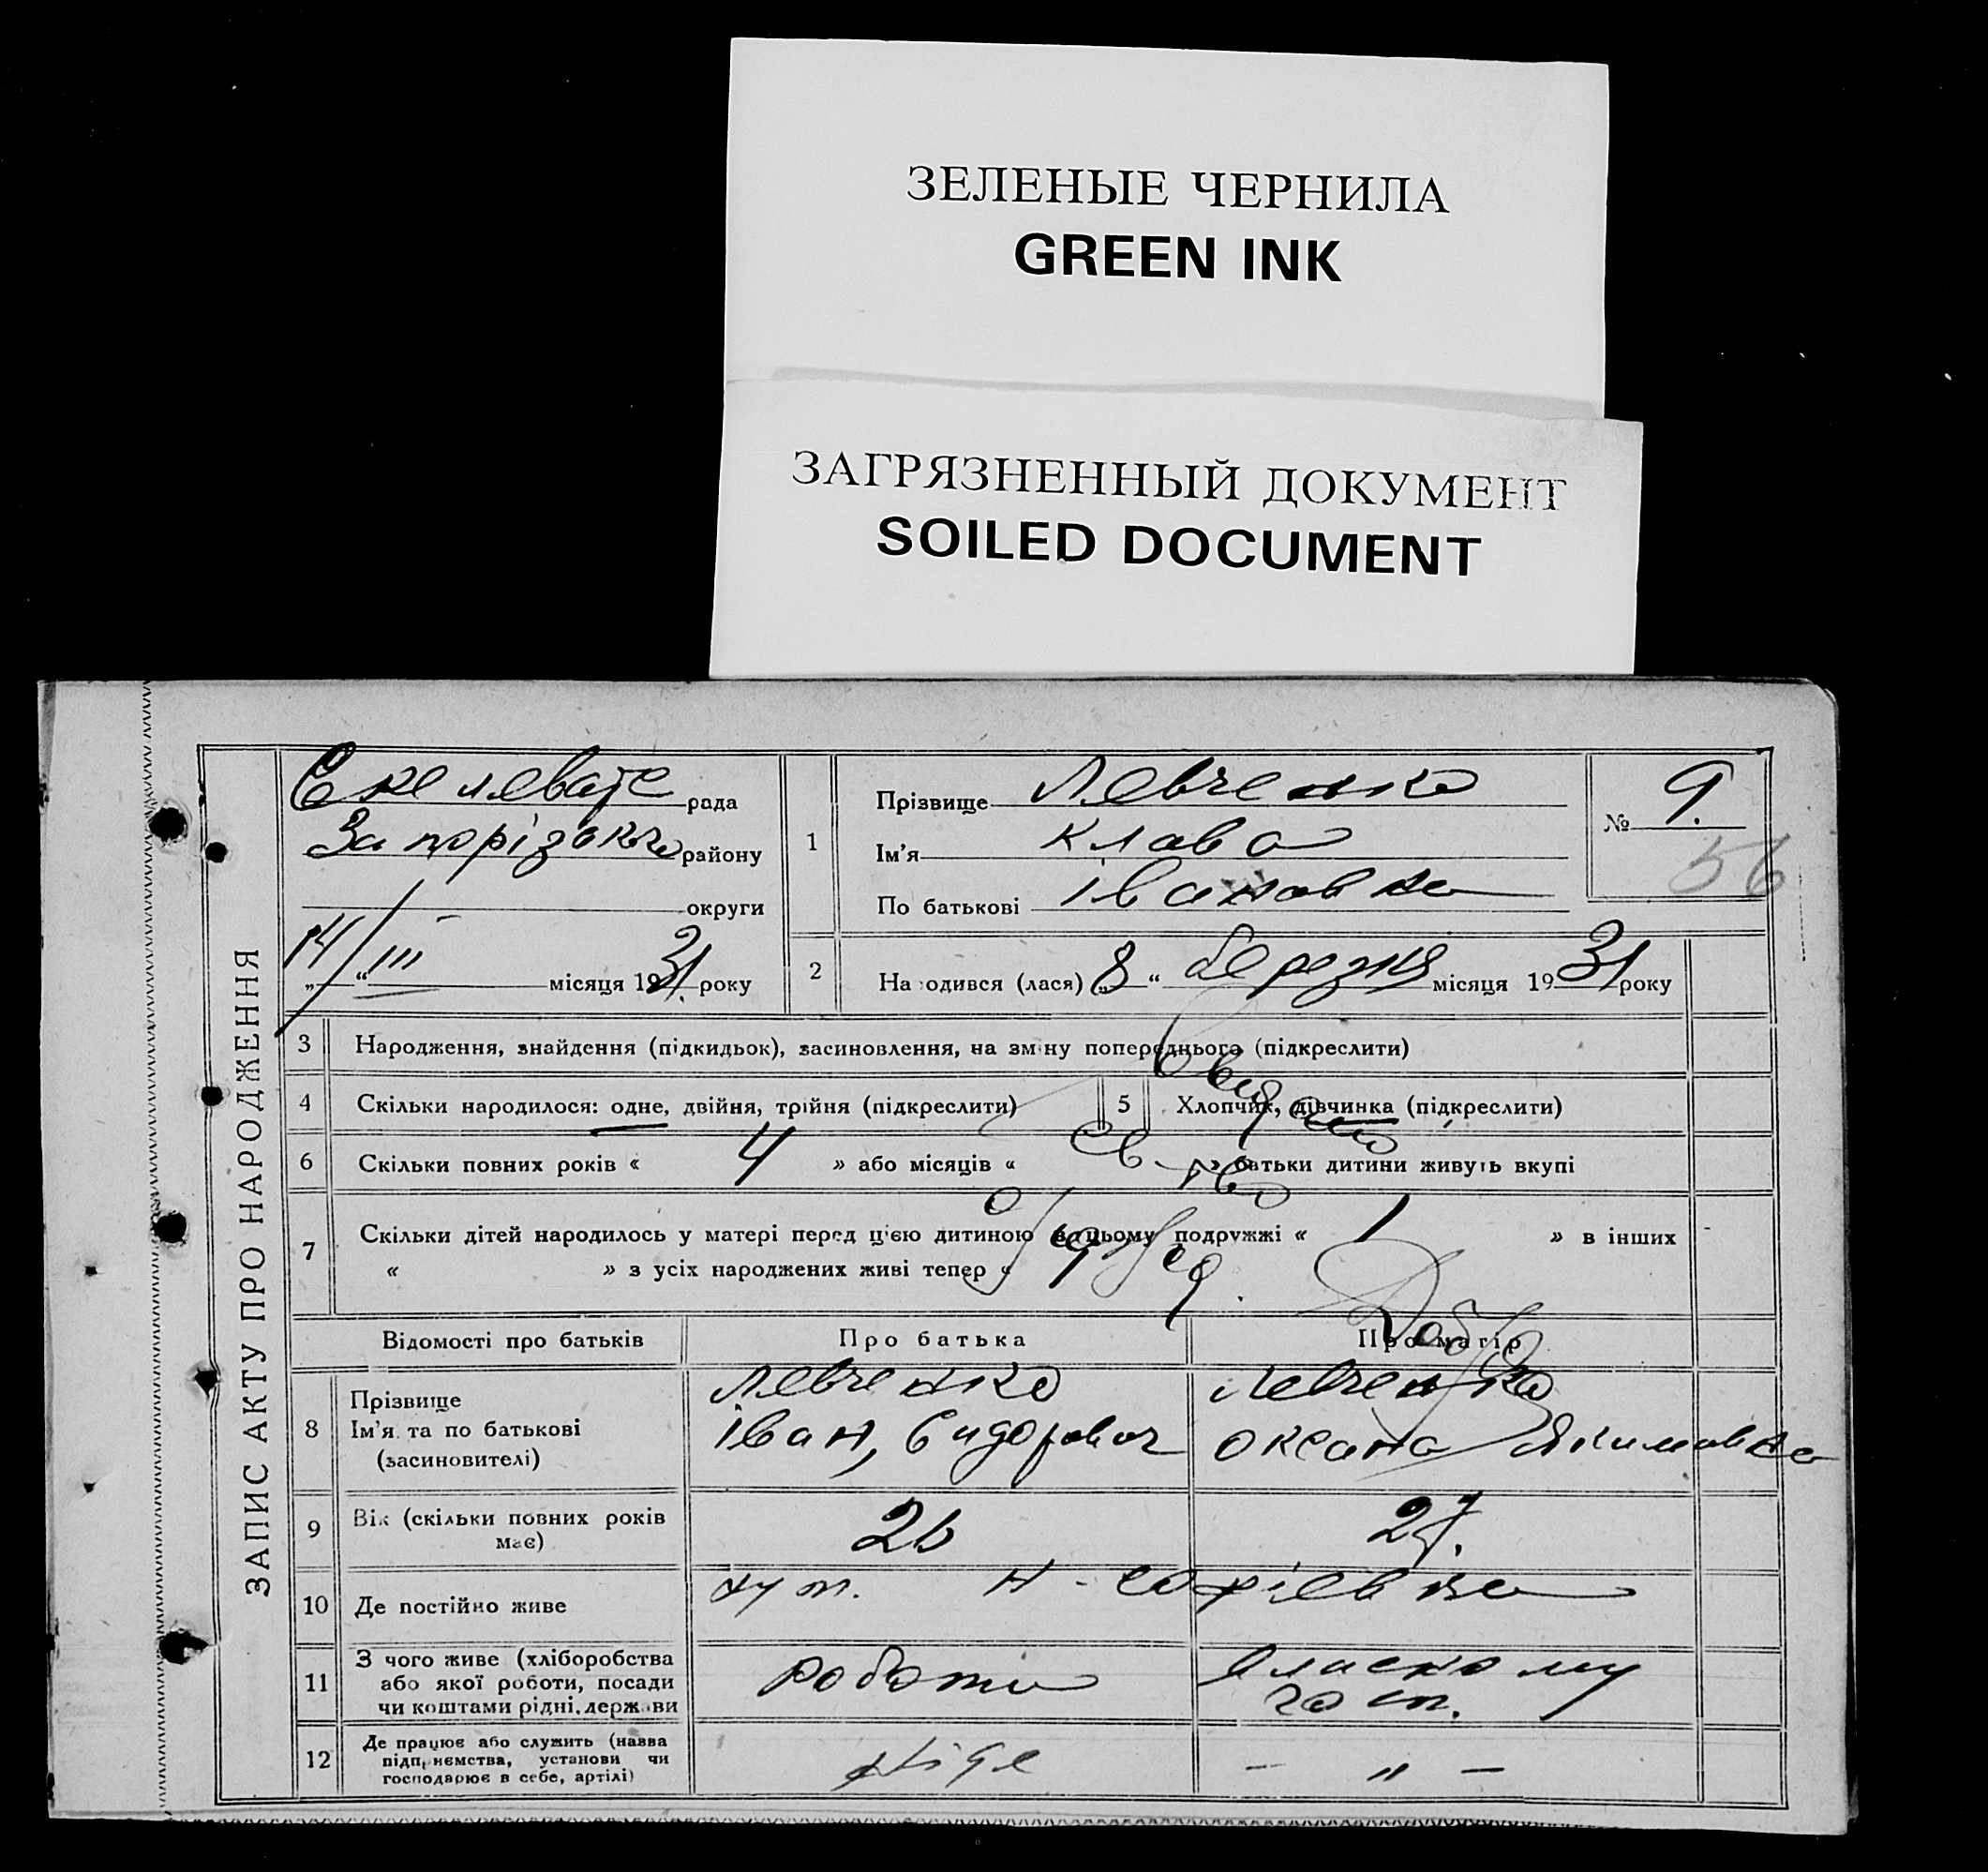 ЗЕЛЕНЫЕ ЧЕРНИЛА
GREEN INK
ЗАГРЯЗНЕННЫЙ ДОКУМЕНТ
SOILED DOCUMENT
ЗАПИС АКТУ ПРО НАРОДЖЕННЯ
Скелевате рада
Запорізького району
округи
„14“ III місяця 1931 року
1
Прізвище Левченко
Ім'я Клава
По батькові Івановна
№ 9.
56
2
Народився (лася) „8“ березня місяця 1931 року
3 Народження, знайдення (підкидьок), засиновлення, на зміну попереднього (підкреслити)
4 Скільки народилося: одне, двійня, трійня (підкреслити)
5 Хлопчик, дівчинка (підкреслити)
6 Скільки повних років « 4 » або місяців « » батьки дитини живуть вкупі
7 Скільки дітей народилось у матері перед цією дитиною в цьому подружжі « 1 » в інших
« » з усіх народжених живі тепер «
Відомості про батьків Про батька Про матір
8 Прізвище
Ім'я та по батькові
(засиновителі)
Левченко
Іван, Сидорович
Левченко
Оксана Якимовна
9 Вік (скільки повних років
має)
26 27.
10 Де постійно живе хут. Н-Софіевка
11 З чого живе (хліборобства
або якої роботи, посади
чи коштами рідні, держави
роботи
12 Де працює або служить (назва
підприємства, установи чи
господарює в себе, артілі)
- „ -